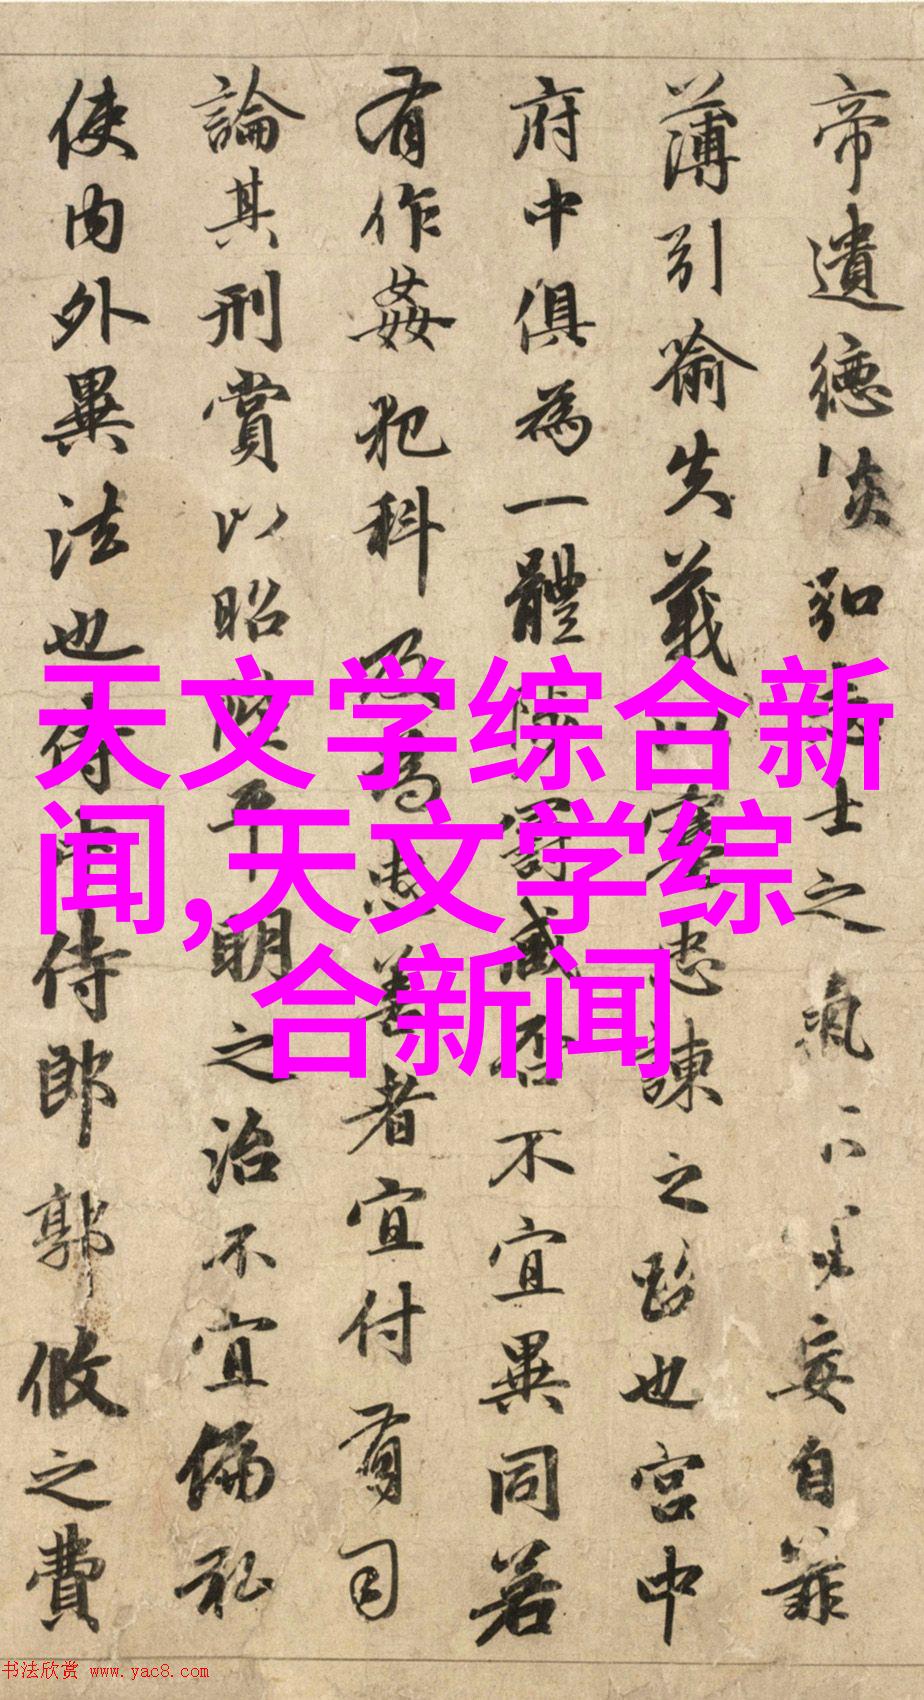 帝遺德恢弘志士之氣不妄自菲
薄引喻失義以塞忠諫之路也宮中
府中俱為一體陟罰臧否不宜異同若
有作姦犯科及為忠善者宜付有司
論其刑賞以昭陛平明之治不宜偏私
使內外異法也侍中侍郎郭攸之費
天文学综合新
闻,天文学综
合新闻
书法欣赏 www.yac8.com